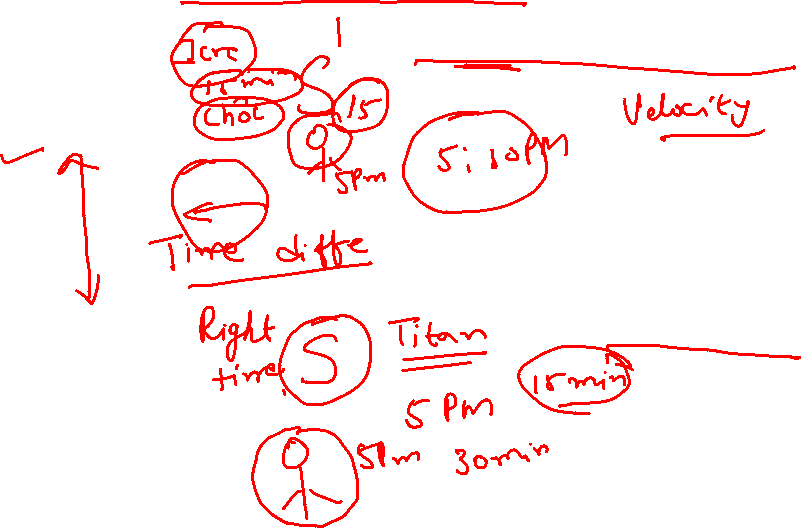 15 min
Choc
15
5 Pm
5:10 PM
Velocity
Time diffe
Right
time
S
Titan
5 PM
15 min
5 Pm 30 min